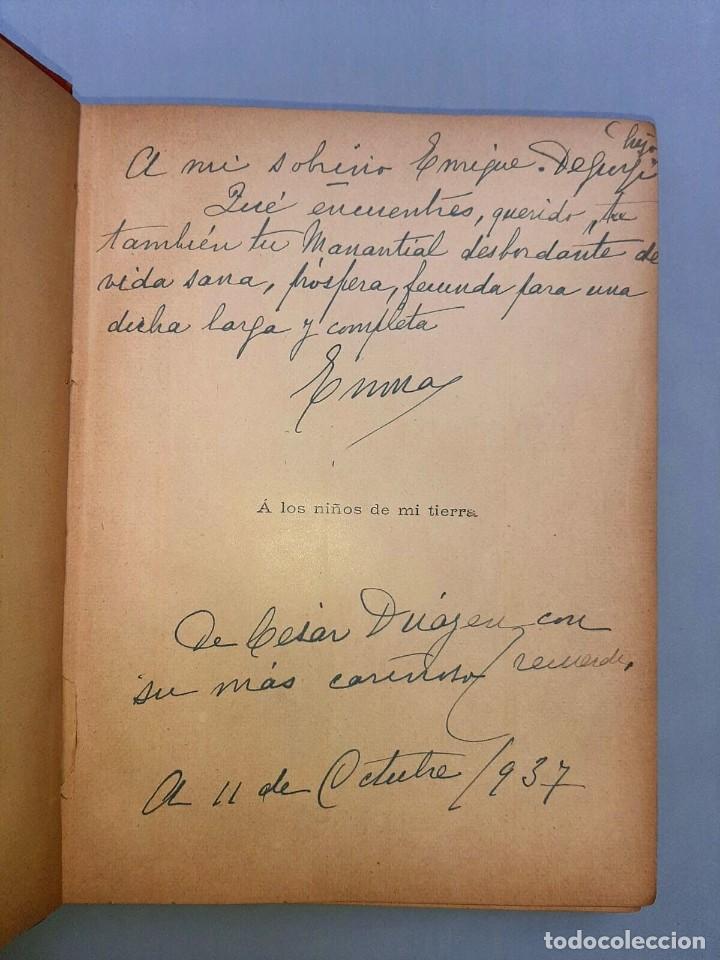 (hijo
A mi sobrino Enrique.
Qué encuentres, querido, tu
también tu Manantial desbordante de
vida sana, próspera, fecunda para una
dicha larga y completa
Emma
Á los niños de mi tierra
De César con
su más cariñoso recuerdo,
A 11 de Octubre /937
todocoleccion
todocoleccion.net